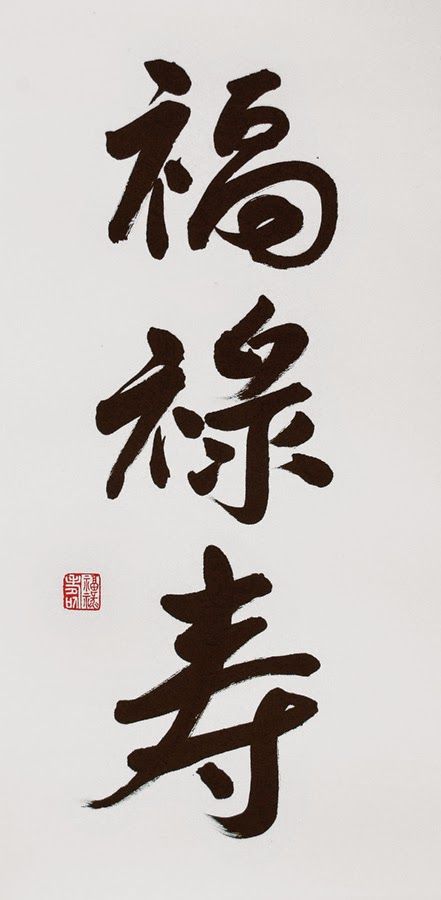 福
祿
寿